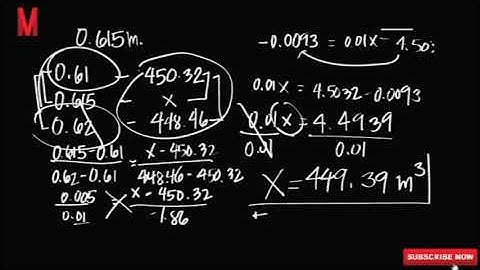 M
0.615m.
0.61 - 450.32
0.615 - x
0.62 - 448.46
0.615-0.61 = x-450.32
0.62-0.61 448.46-450.32
0.005 = x-450.32
0.01 -1.86
-0.0093 = 0.01x-4.50
0.01x = 4.5032-0.0093
0.01x = 4.4939
0.01 0.01
x=449.39 m³
SUBSCRIBE NOW